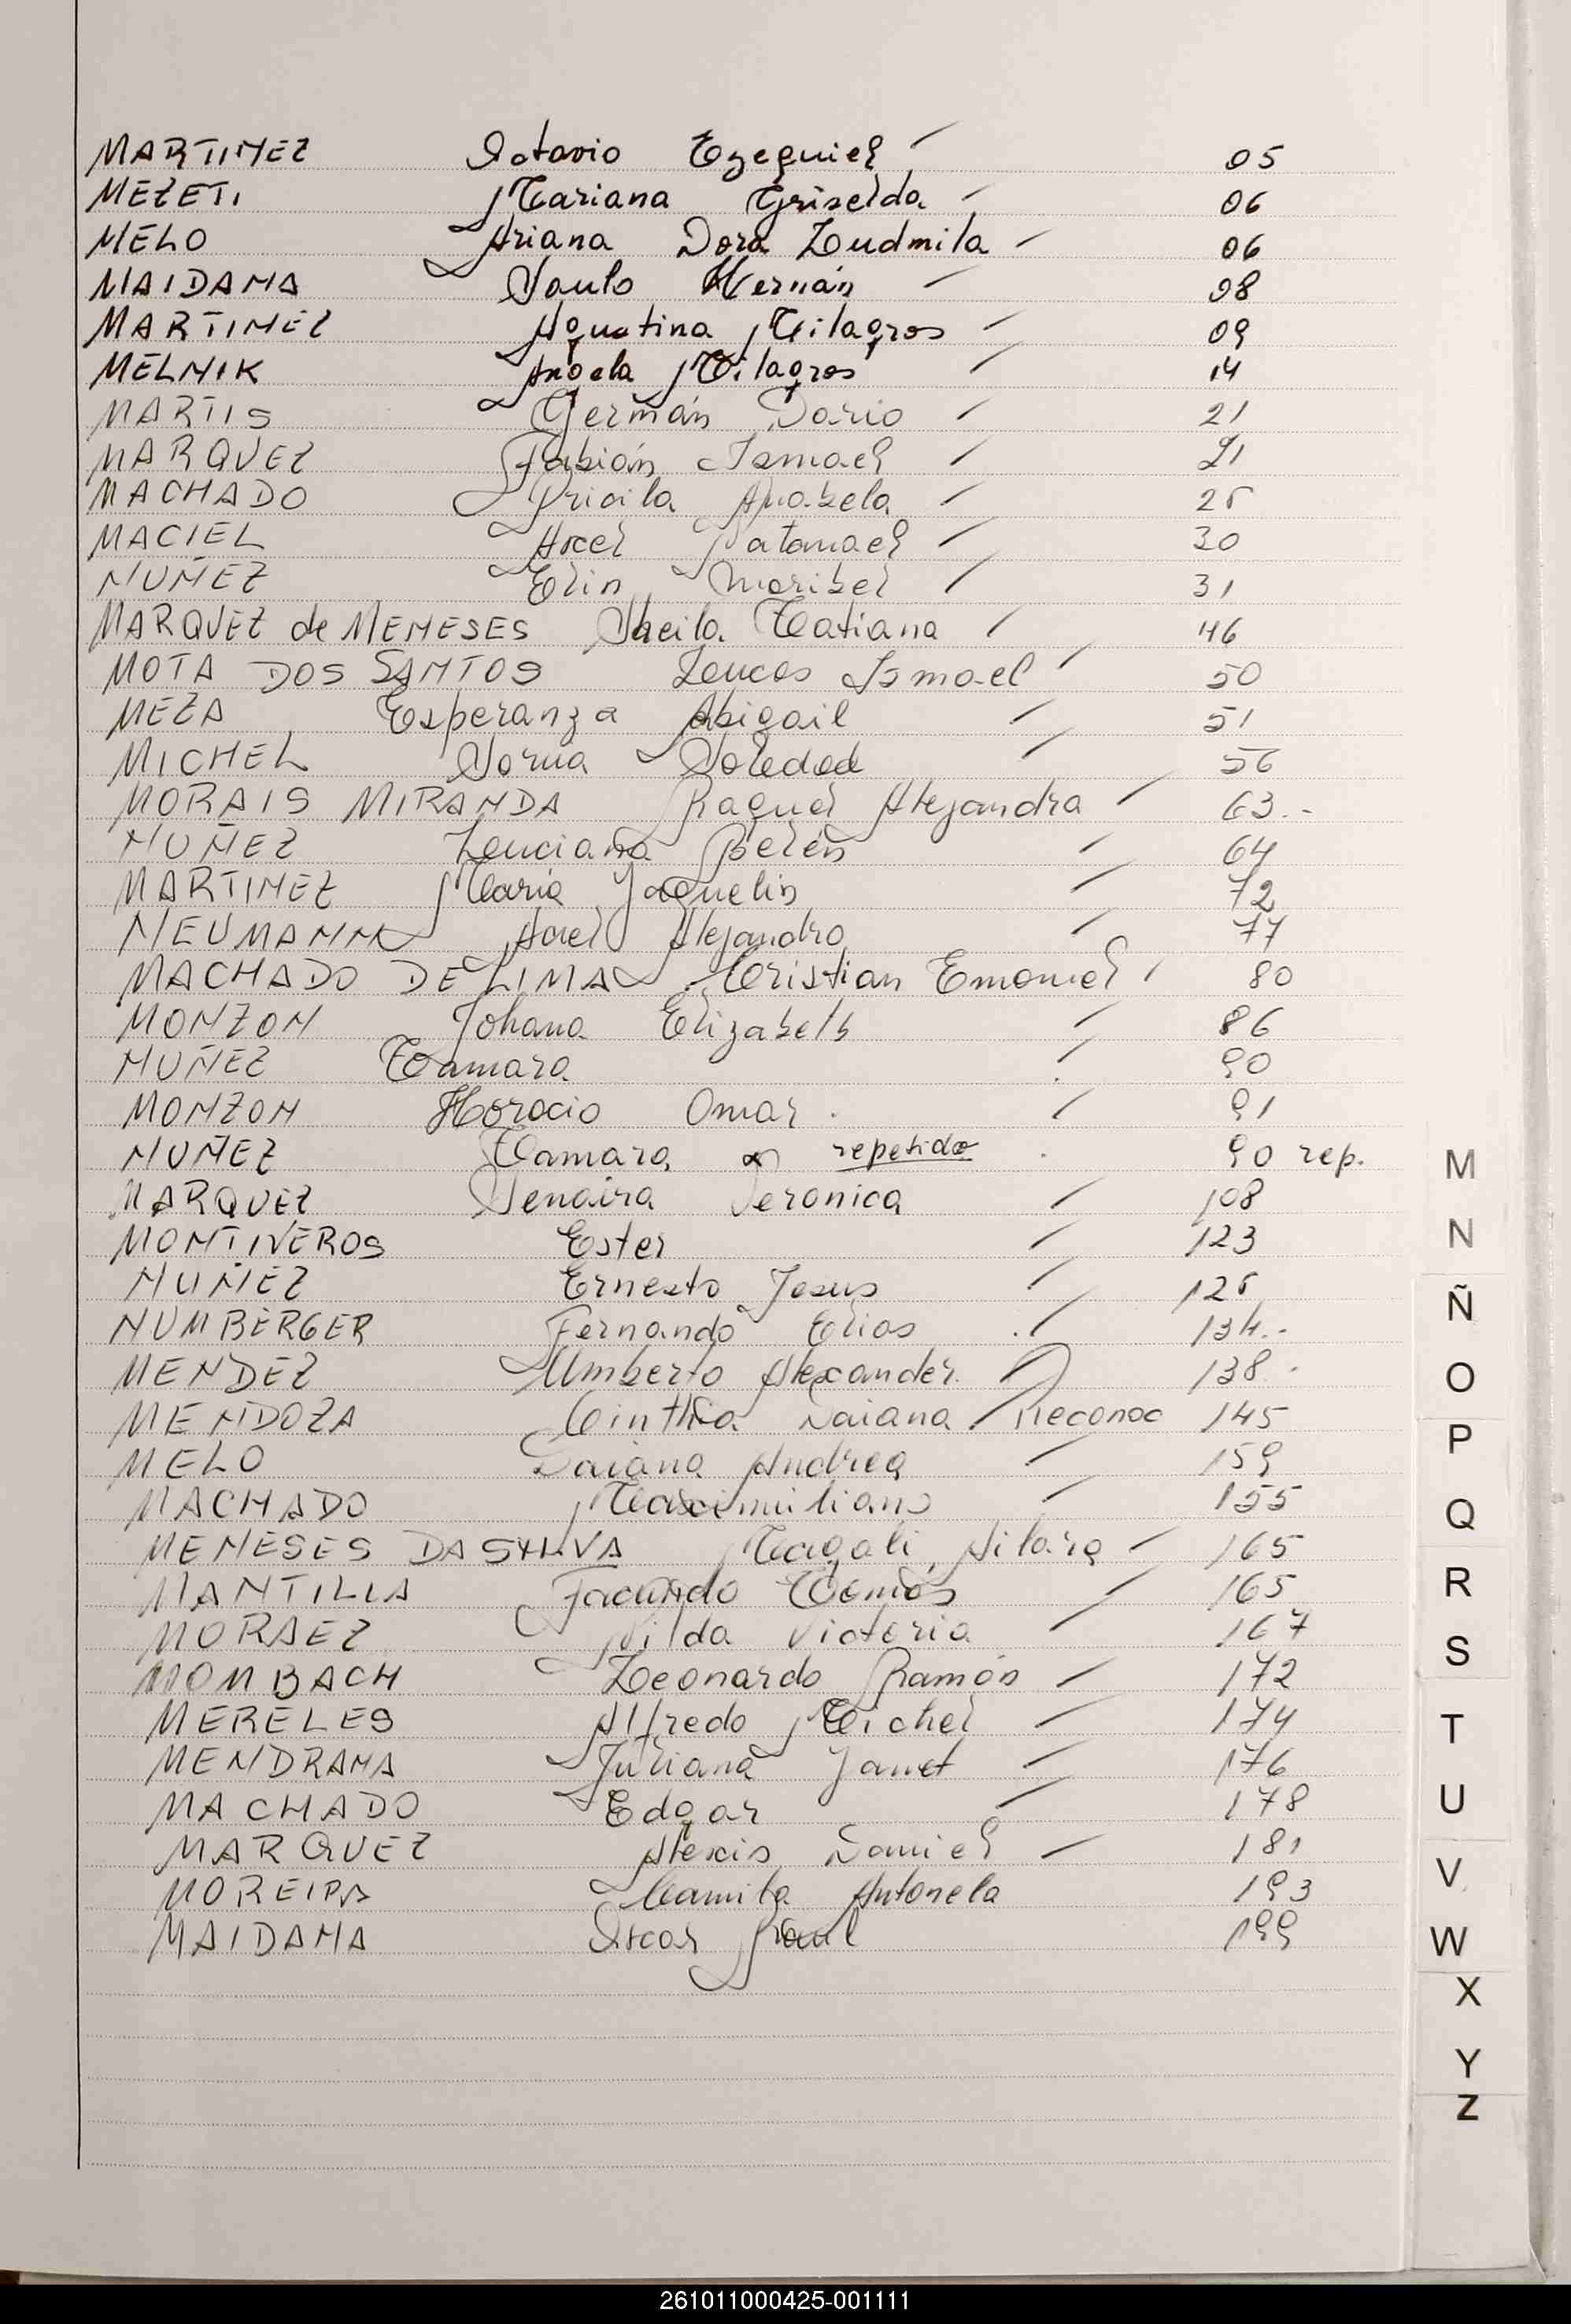 MARTINEZ Octavio Ezequiel 05
MEZETI Mariana Griselda 06
MELO Ariana Dora Ludmila 06
MAIDANA Saulo Hernán 08
MARTINEZ Agustina Milagros 09
MELNIK Angela Milagros 14
MARTIS Germán Dario 21
MARQUEZ Fabián Ismael 21
MACHADO Pricila Anabela 25
MACIEL Axel Natanael 30
NUÑEZ Elin Maribel 31
MARQUEZ de MENESES Sheila Tatiana 46
MOTA DOS SANTOS Lucas Ismael 50
MEZA Esperanza Abigail 51
MICHEL Sonia Soledad 56
MORAIS MIRANDA Raquel Alejandra 63.-
NUÑEZ Luciana Belén 64
MARTINEZ Maria Jaquelin 72
NEUMANN Axel Alejandro 77
MACHADO DE LIMA Cristian Emanuel 80
MONZON Johana Elizabeth 86
NUÑEZ Tamara 90
MONZON Horacio Omar 91
NUÑEZ Tamara repetido 90 rep.
MARQUEZ Veronica 108
MONTIVEROS Ester 123
NUÑEZ Ernesto Jesus 125
NUMBERGER Fernando Elias 134.-
MENDEZ Umberto Alexander 138.-
MENDOZA Cinthia Daiana Reconoc 145
MELO Daiana Andrea 159
MACHADO Maximiliano 155
MENESES DA SILVA Magali Ailara 165
MANTILLA Facundo Tomás 165
MORAEZ Nilda Victoria 167
MOMBACH Leonardo Ramón 172
MERELES Alfredo Michel 174
MENDRANA Juliana Janet 176
MACHADO Edgar 178
MARQUEZ Alexis Daniel 181
MOREIRA Camila Antonela 193
MAIDANA Oscar Raul 199
M
N
Ñ
O
P
Q
R
S
T
U
V
W
X
Y
Z
261011000425-001111